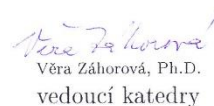 Věra Záhorová
Věra Záhorová, Ph.D.
vedoucí katedry